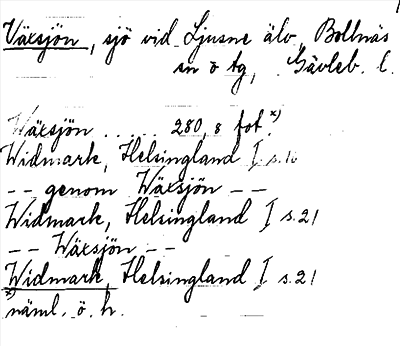 Växsjön, sjö vid Ljusne älv, Bollnäs
sn o tg, Gävleb. l.
Wäxsjön ..... 280,8 fot.x)
Widmark, Helsingland I s.16
-- genom Wäxsjön --
Widmark, Helsingland I s.21
-- Wäxsjön --
Widmark, Helsingland I s.21
x) näml. ö. h.